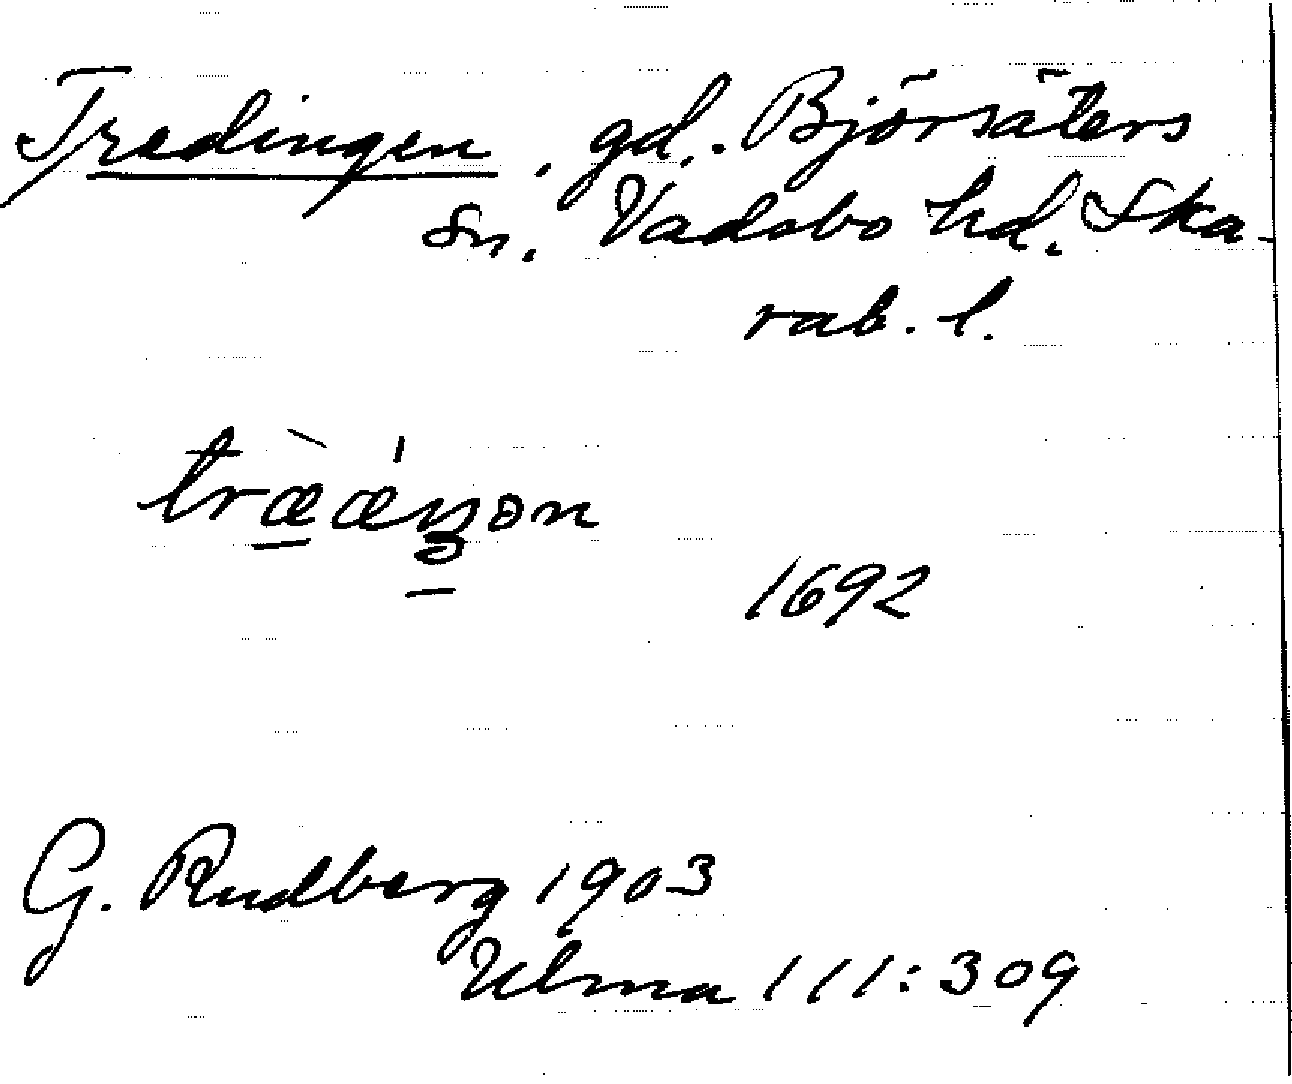 Tredingen, gd. Björsäters
sn. Vadsbo hd. Ska-
rab. l.
1692
G. Rudberg 1903
Ulma 111:309